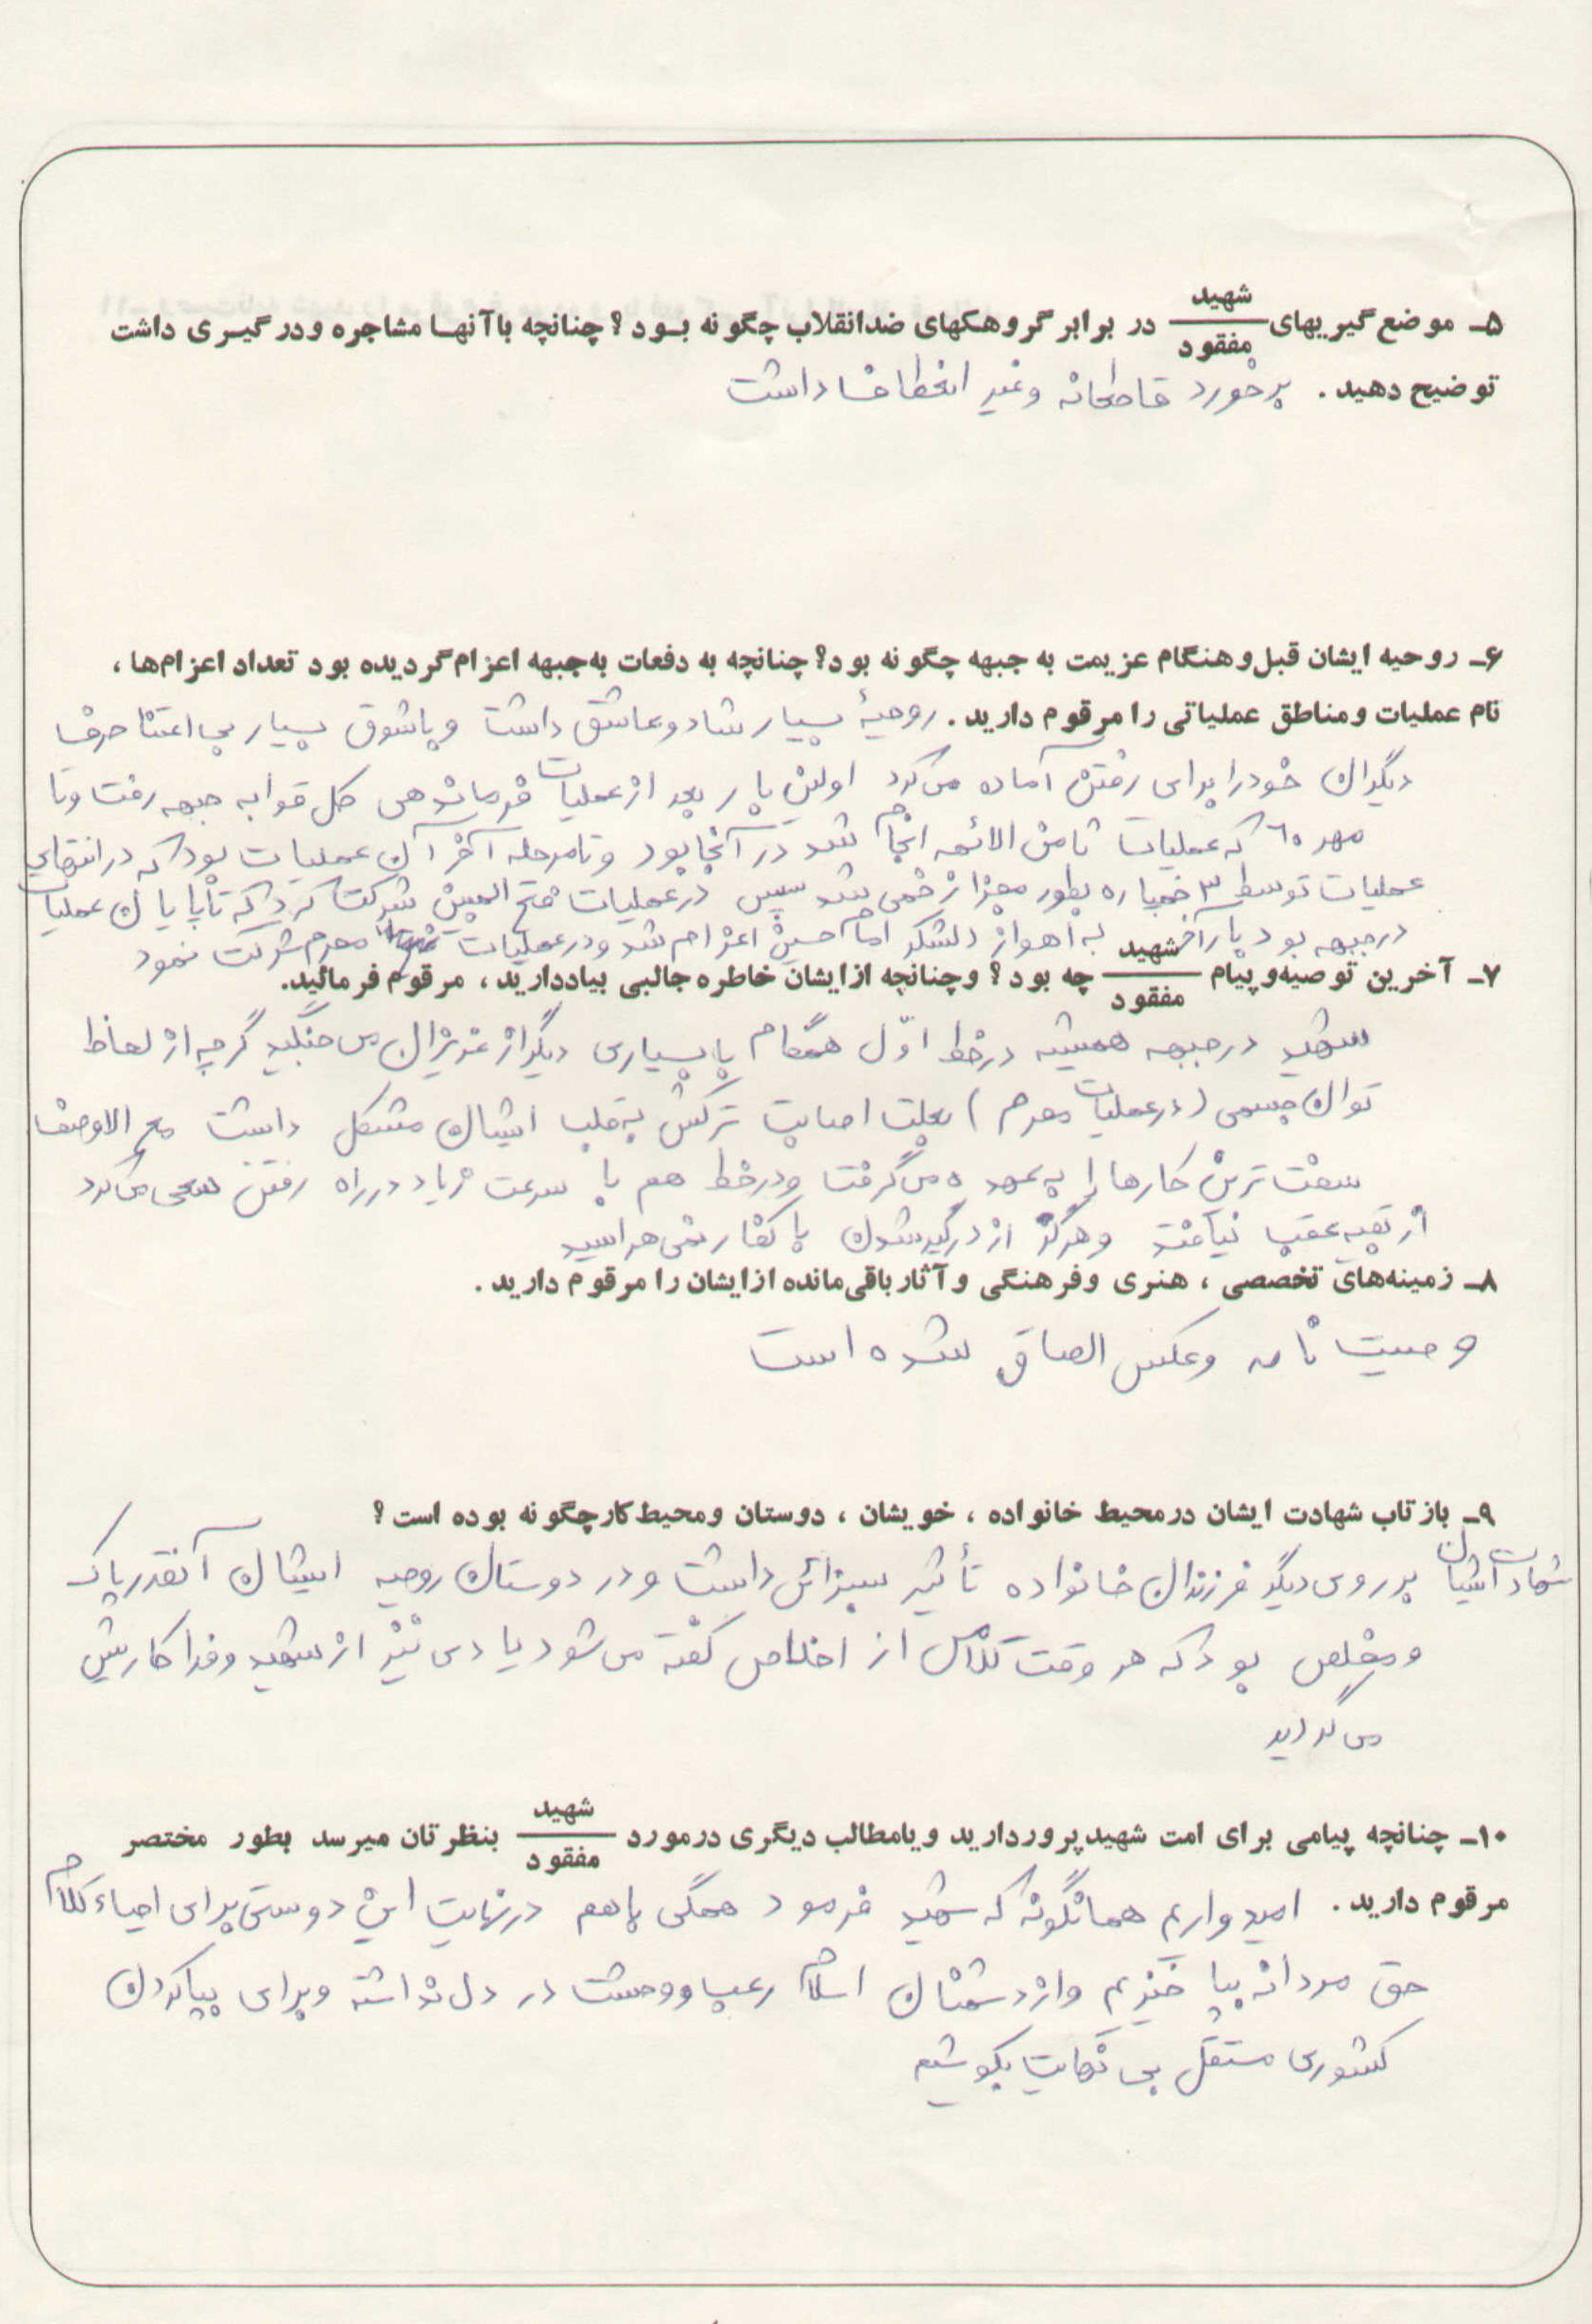 ۵ـ موضع گیریهای شهید / مفقود در برابر گروهکهای ضدانقلاب چگونه بود ؟ چنانچه با آنها مشاجره و درگیری داشت
توضیح دهید . برخورد قاطعانه و غیر انعطافا داشت
۶ـ روحیه ایشان قبل و هنگام عزیمت به جبهه چگونه بود؟ چنانچه به دفعات به جبهه اعزام گردیده بود تعداد اعزام‌ها ،
نام عملیات و مناطق عملیاتی را مرقوم دارید . روحیهٔ بسیار شاد و عاشق داشت و باشوق بسیار بی اعتنا حرف
دیگران خود را برای رفتن آماده می‌کرد اولین بار بعد از عملیات فرماندهی کل قوا به جبهه رفت و تا
مهر ٦٠ که عملیات ثامن الائمه انجام شد در آنجا بود و تا مرحله آخر آن عملیات بود که در انتهای
عملیات توسط ۳ خمپاره بطور مجزا زخمی شد سپس در عملیات فتح المبین شرکت کرد که تا پایان عملیات
در جبهه بود بار آخر به اهواز لشکر امام حسین اعزام شد و در عملیات محرم شرکت نمود
۷ـ آخرین توصیه و پیام شهید / مفقود چه بود ؟ و چنانچه از ایشان خاطره جالبی بیاد دارید ، مرقوم فرمائید.
شهید در جبهه همیشه در خط اوّل همگام با بسیاری دیگر از عزیزان می جنگید گرچه از لحاظ
توان جسمی (در عملیات محرم ) بعلت اصابت ترکش به قلب ایشان مشکل داشت مع الاوصف
سخت ترین کارها را به عهده می گرفت و در خط هم با سرعت زیاد در راه رفتن سعی می‌کرد
از بقیه عقب نیافتد و هرگز از درگیر شدن با کفار نمی هراسید
۸ـ زمینه‌های تخصصی ، هنری و فرهنگی و آثار باقی‌مانده از ایشان را مرقوم دارید .
وصیت نامه و عکس الصاق شده است
۹ـ بازتاب شهادت ایشان در محیط خانواده ، خویشان ، دوستان و محیط کار چگونه بوده است ؟
شهادت ایشان بر روی دیگر فرزندان خانواده تأثیر بسزائی داشت و در دوستان روحیه ایشان آنقدر پاک
و مخلص بود که هر وقت کلامی از اخلاص گفته می شود یادی نیز از شهید و فداکاریش
می گردید
۱۰ـ چنانچه پیامی برای امت شهیدپرور دارید و یا مطالب دیگری در مورد شهید / مفقود بنظرتان میرسد بطور مختصر
مرقوم دارید . امیدواریم همانگونه که شهید فرمود همگی باهم در نهایت این دوستی برای احیاء کلام
حق مردانه بپا خیزیم و از دشمنان اسلام رعب و وحشت در دل نداشته و برای بپا کردن
کشوری مستقل بی نهایت بکوشیم